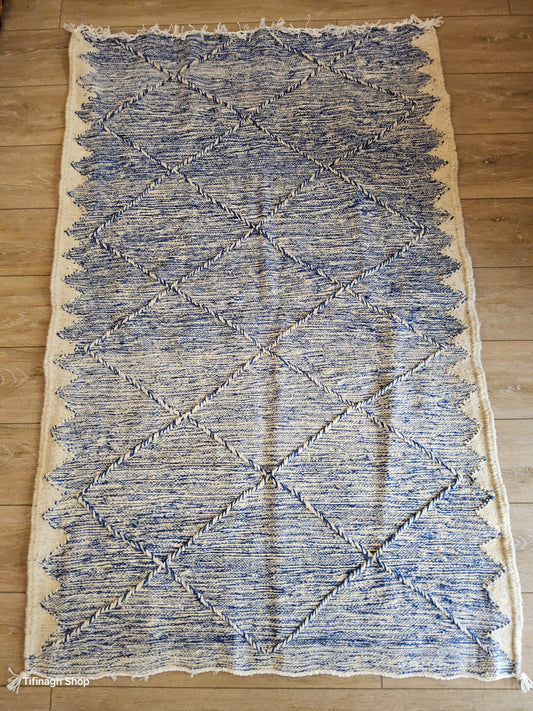 Tifinagh Shop